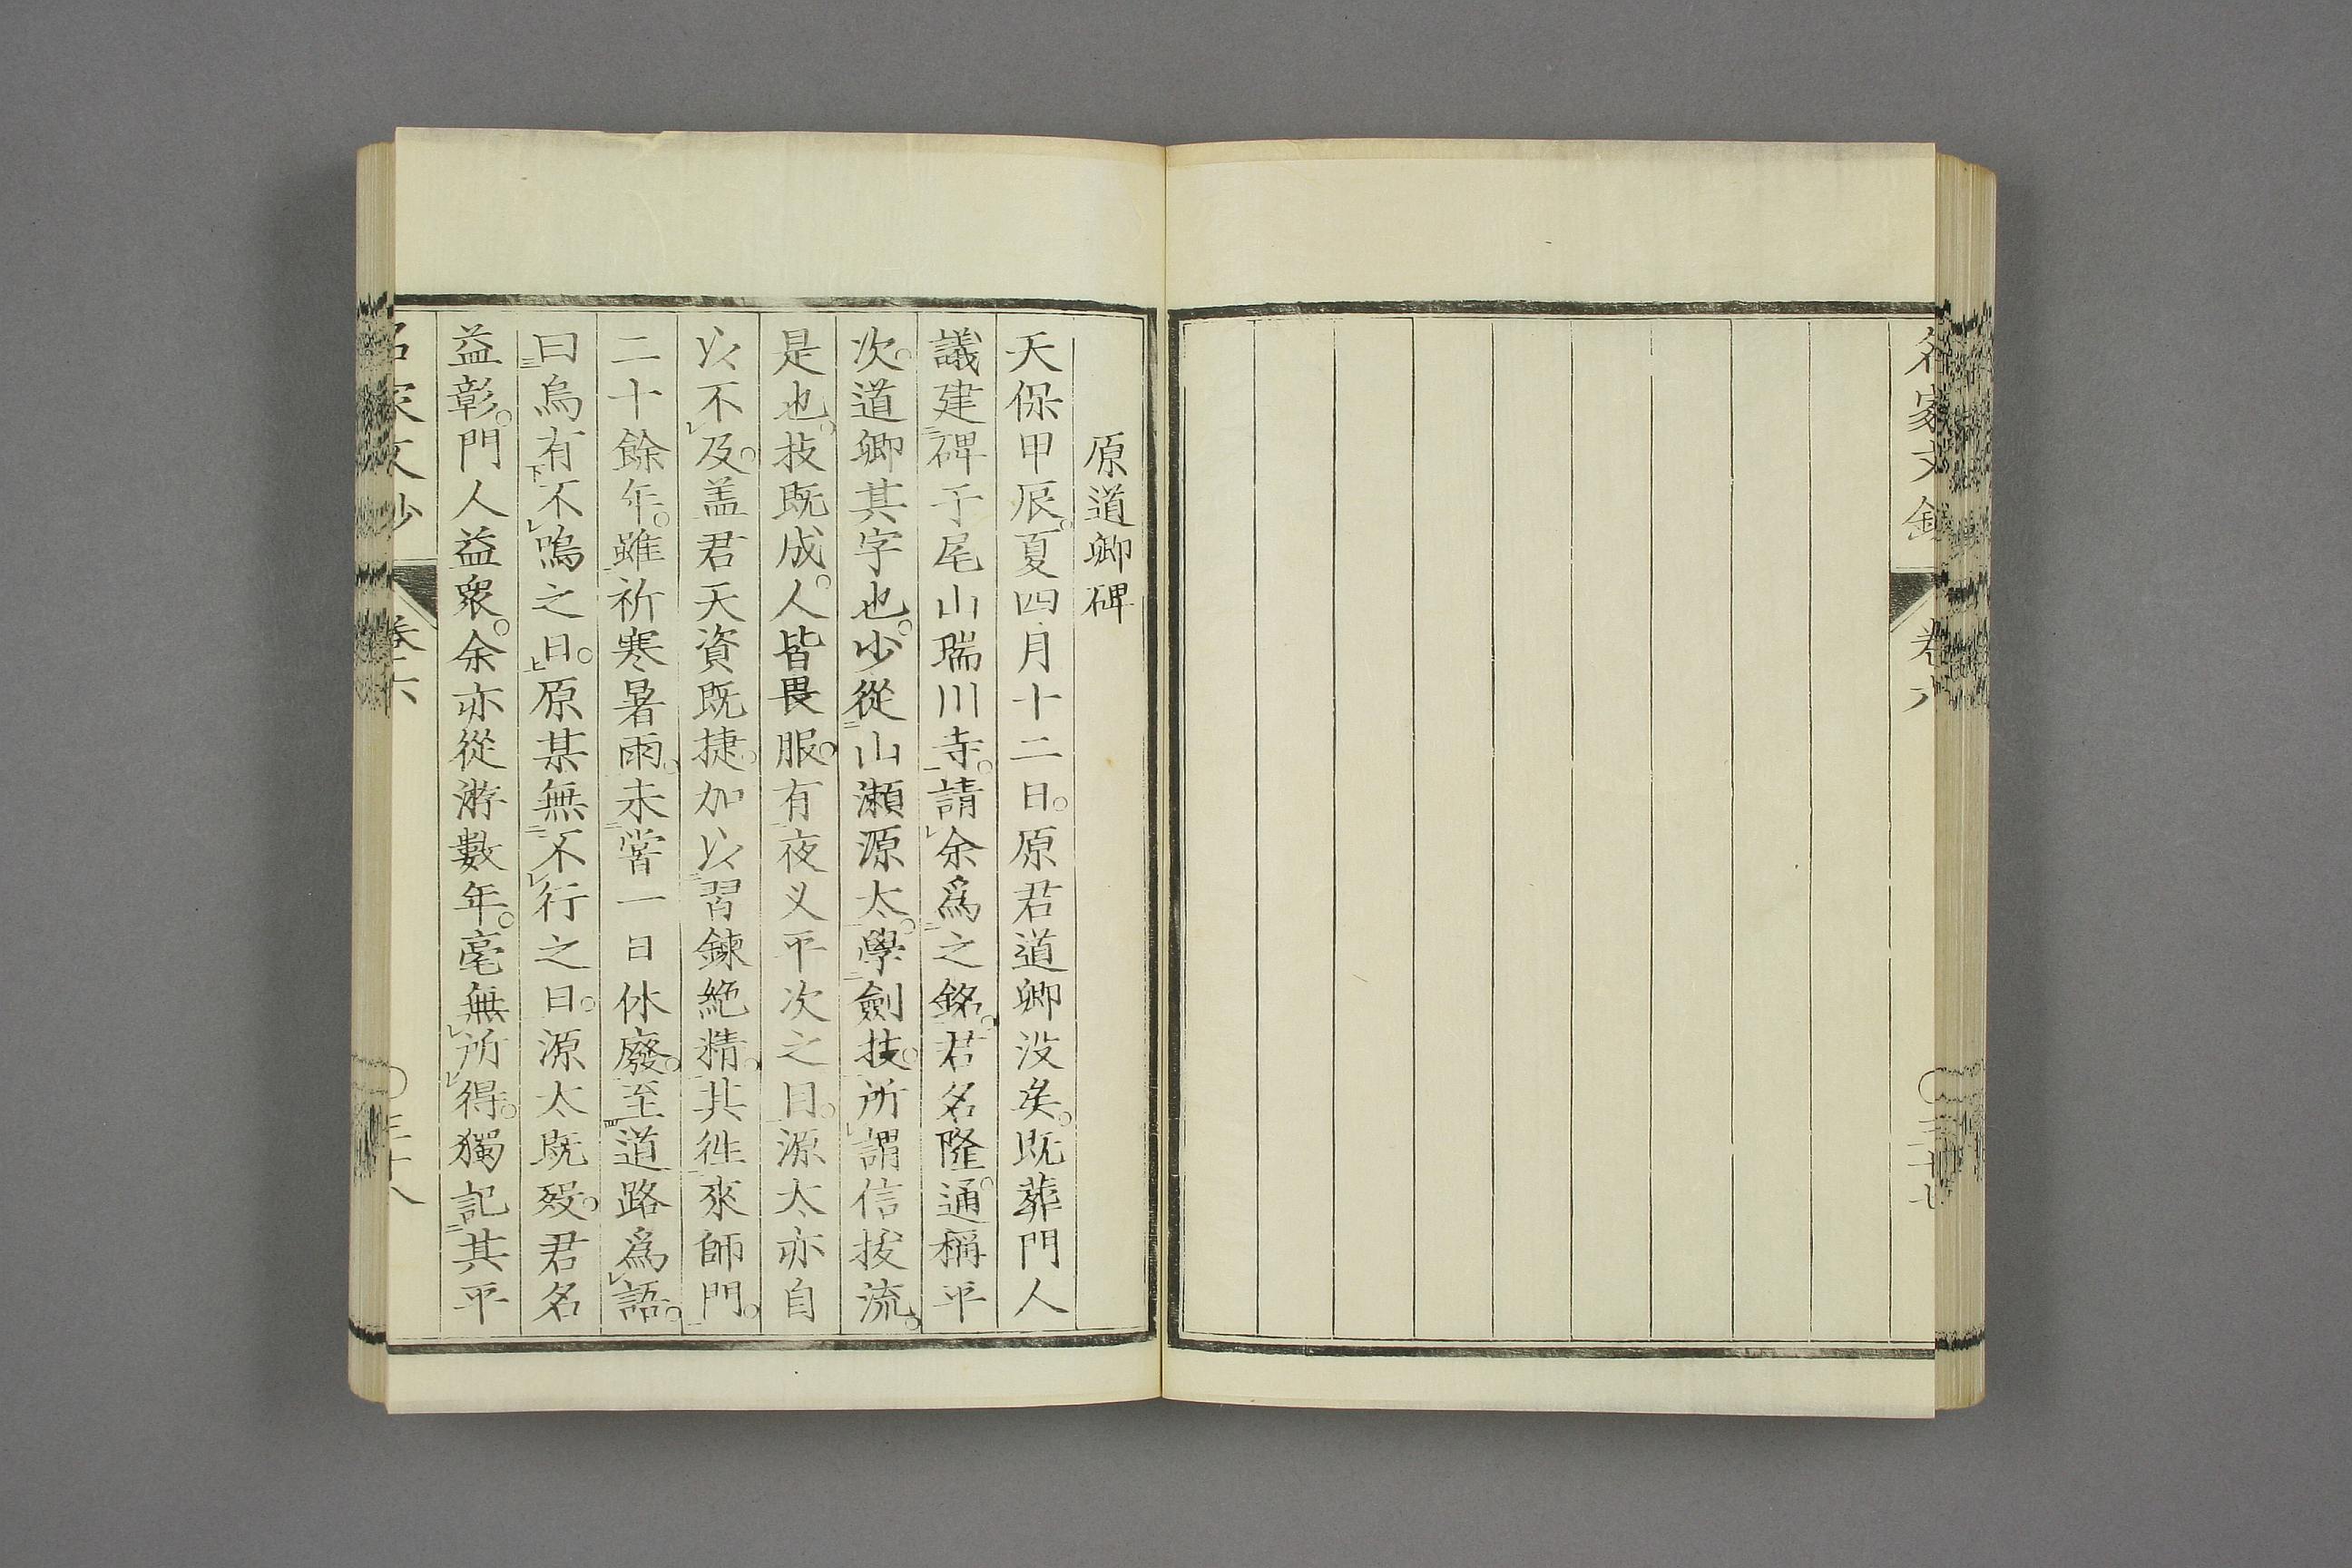 名家文鈔
卷八
三十七
原道卿碑
天保甲辰。夏四月十二日。原君道卿没矣。既葬門人
議建碑于尾山瑞川寺。請余爲之銘。君名隆。通稱平
次。道卿其字也。少從山瀬源太。學劍技。所謂信拔流。
是也。技既成。人皆畏服。有夜叉平次之目。源太亦自
以不及。盖君天資既捷。加以習鍊絶精。其徃來師門。
二十餘年。雖祈寒暑雨。未甞一日休廢。至道路爲語。
曰烏有不鳴之日。原某無不行之日。源太既歿。君名
益彰。門人益衆。余亦從游數年。毫無所得。獨記其平
名家文鈔
卷六
三十八